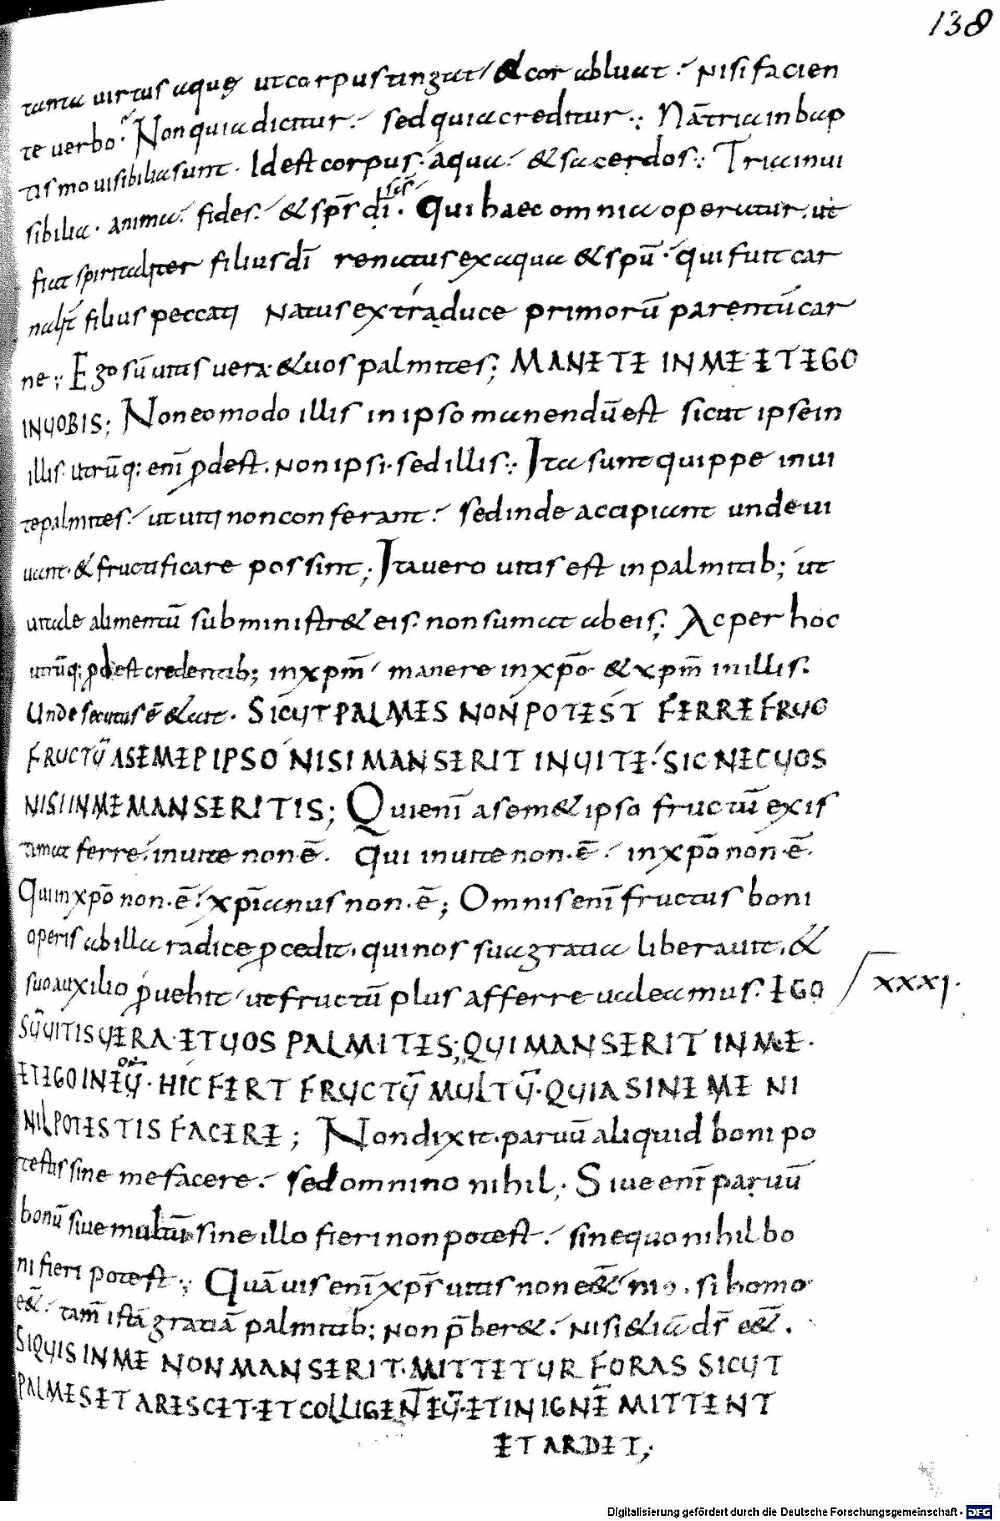 138
tanta uirtus aquę ut corpus tingat & cor abluat. Nisi facien
te uerbo. Non quia dicitur. sed quia creditur. Nā tria in bap
tismo uisibilia sunt. Id est corpus. aqua. & sacerdos. Tria inui
sibilia. anima. fides. & sp̄s dī. scs̄. Qui haec omnia operatur. ut
fiat spiritaliter filius dī renatus ex aqua & spū. qui fuit car
nalit̄ filius peccati Natus ex traduce primorū parentū car
ne. Ego sū uitis uera & uos palmites; MANETE IN ME ET EGO
IN UOBIS; Non eo modo illis in ipso manendū est sicut ipse in
illis. utrūq; enī ꝓdest. Non ipsi. sed illis. Ita sunt quippe in ui
te palmites. ut uiti non conferant. sed inde accipiunt unde ui
uant. & fructificare possint; Ita uero uitis est in palmitib; ut
uitale alimentū subministr& eis. non sumat ab eis; Ac per hoc
utrūq; ꝓdest credentib; in xpm̄ manere in xpō & xpm̄ in illis.
Unde secutus ē & ait. SICUT PALMES NON POTEST FERRE FRUC
FRUCTŪ A SEMEPIPSO NISI MANSERIT IN UITE. SIC NEC UOS
NISI IN ME MANSERITIS; Qui enī a sem&ipso fructū exis
timat ferre. in uite non. ē. Qui in uite non. ē. in xpō non. ē.
Qui in xpō non. ē. xpīanus non. ē; Omnis enī fructus boni
operis ab illa radice ꝓcedit. qui nos sua gratia liberauit. &
suo auxilio ꝓuehit ut fructū plus afferre ualeamus. EGO
XXXI.
SŪ UITIS UERA. ET UOS PALMITES; QUI MANSERIT IN ME.
ET EGO IN EŪ. HIC FERT FRUCTŪ MULTŪ. QUIA SINE ME NI
NIL POTESTIS FACERE; Non dixit. paruū aliquid boni po
testis sine me facere. sed omnino nihil; Siue enī paruū
bonū siue multū sine illo fieri non potest. sine quo nihil bo
ni fieri potest. Quāuis enī xp̄s uitis non e&̄ si homo
e&̄. tam̄ istā gratiā palmitib; non p̄ber&. nisi &iā ds̄ e&̄.
SI QUIS IN ME NON MANSERIT. MITTETUR FORAS SICUT
PALMES ET ARESCET. ET COLLIGENT EŪ. ET IN IGNĒ MITTENT
ET ARDET;
Digitalisierung gefördert durch die Deutsche Forschungsgemeinschaft - DFG